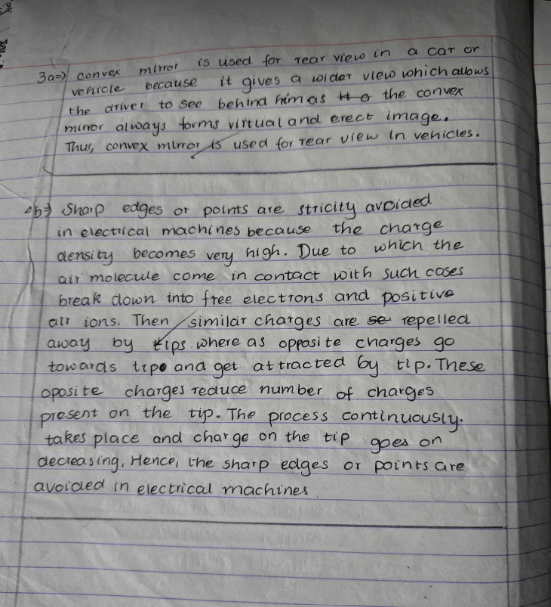 3a⇒) convex mirror is used for rear view in a car or
vehicle because it gives a wider view which allows
the driver to see behind him as the convex
mirror always forms virtual and erect image.
Thus, convex mirror is used for rear view in vehicles.
b⇒) Sharp edges or points are stricity avoided
in electrical machines because the charge
density becomes very high. Due to which the
air molecule come in contact with such cases
break down into free electrons and positive
air ions. Then similar charges are repelled
away by tips where as opposite charges go
towards tips and get attracted by tip. These
oposite charges reduce number of charges
present on the tip. The process continuously.
takes place and charge on the tip goes on
decreasing. Hence, the sharp edges or points are
avoided in electrical machines